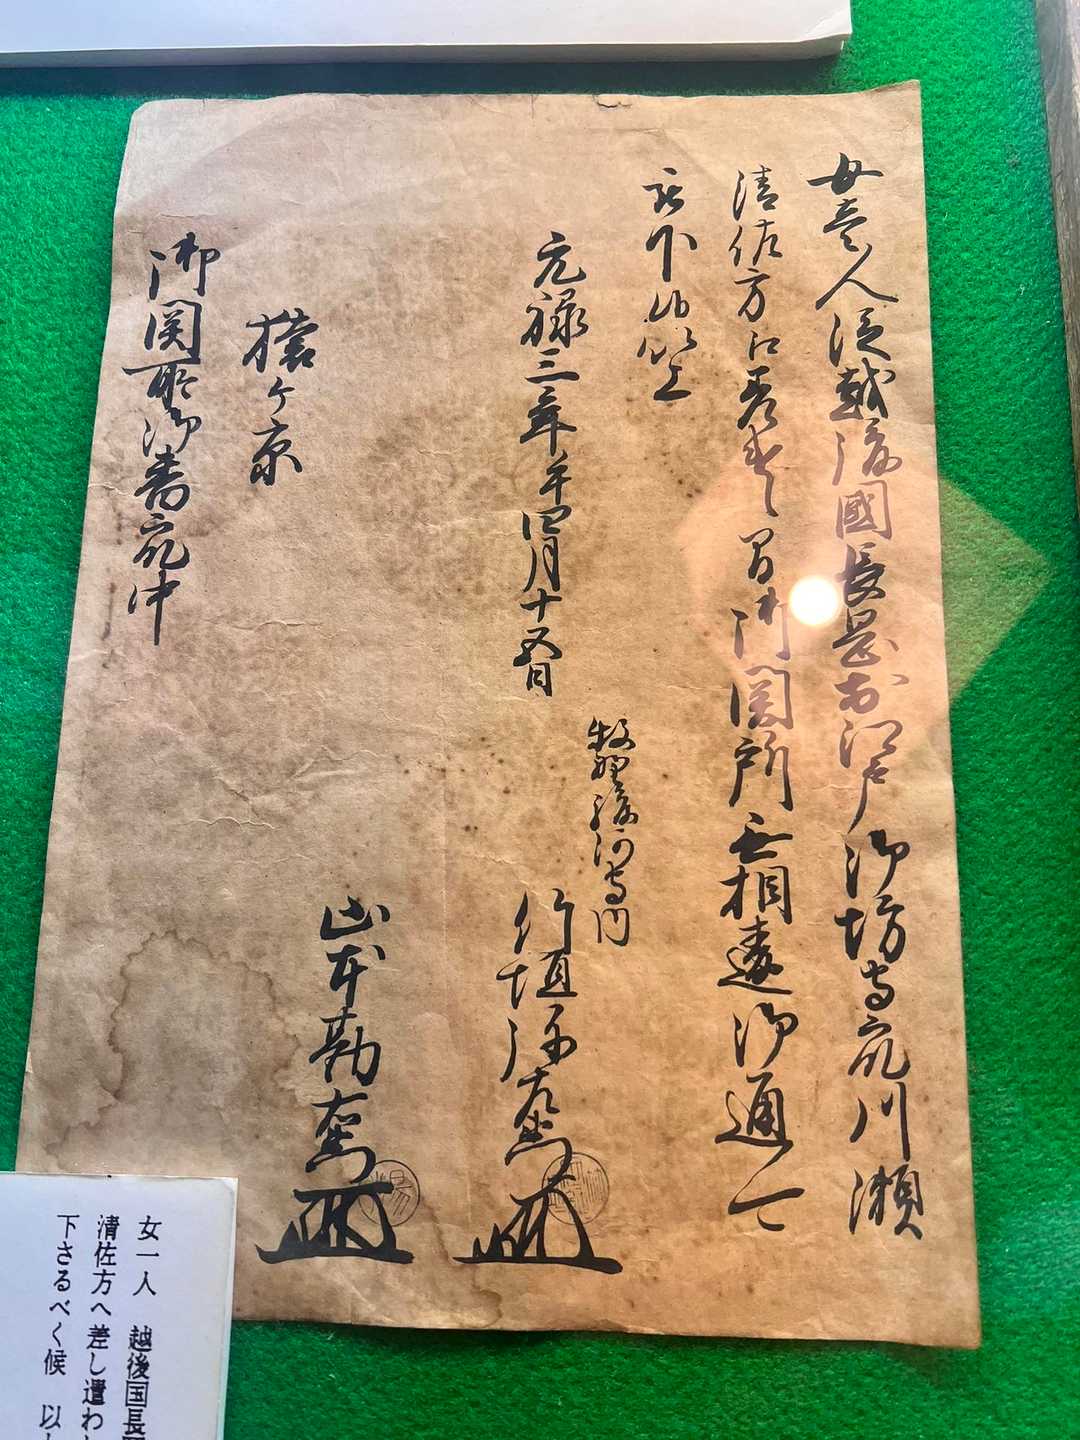 女壱人従越後國長岡於江戸御坊主衆川瀬
清佐方江差遣之申候間御関所無相違御通可
被下候以上
元禄三年午四月十五日
牧野駿河守内
竹垣弥左衛門
山本勘右衛門
猿ヶ京
御関所御番衆中
女一人 越後国長
清佐方へ差し遣わ
下さるべく候 以